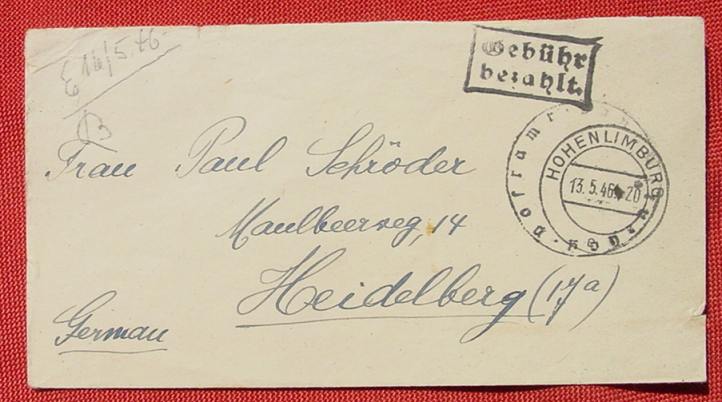 E 16/5.46.
B
Gebühr
bezahlt.
HOHENLIMBURG
13.5.46.-20
Frau Paul Schröder
Maulbeerweg, 14
Heidelberg (17a)
German